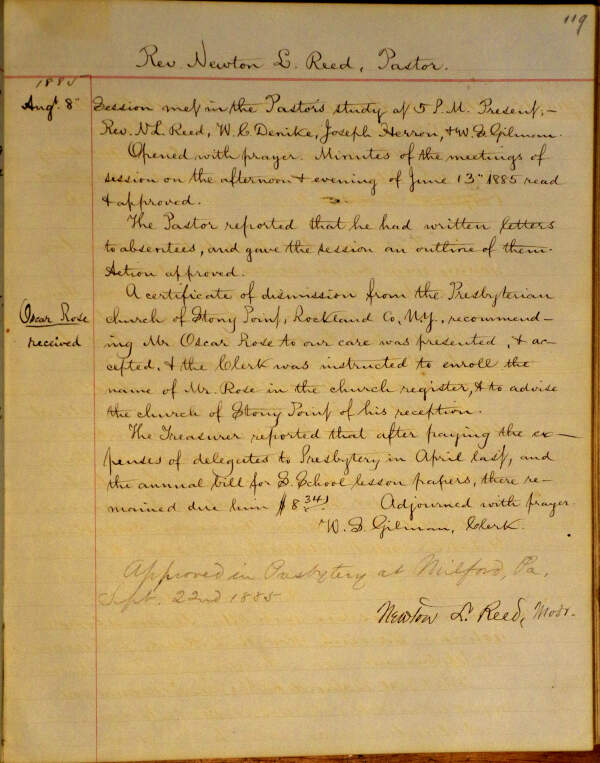 119
Rev Newton L. Reed, Pastor.
1885
Augt. 8" Session met in the Pastors study at 5 P.M. Present:-
Rev. N.L. Reed, W.C Denike, Joseph Herron, & W.S. Gilman.
Opened with prayer. Minutes of the meetings of
session on the afternoon & evening of June 13" 1885 read
& approved.
The Pastor reported that he had written letters
to absentees, and gave the session an outline of them.
Action approved.
A certificate of dismission from the Presbyterian
Oscar Rose church of Stony Point, Rockland Co, N.Y., recommend-
received ing Mr. Oscar Rose to our care was presented, & ac-
cepted, & the Clerk was instructed to enroll the
name of Mr. Rose in the church register, & to advise
the church of Stony Point of his reception.
The Treasurer reported that after paying the ex-
penses of delegates to Presbytery in April last, and
the annual bill for S. School lesson papers, there re-
mained due him $8 Adjourned with prayer.
W. S. Gilman, Clerk.
Approved in Presbytery at Milford, Pa.
Sept. 22nd 1885
Newton L. Reed, Modr.